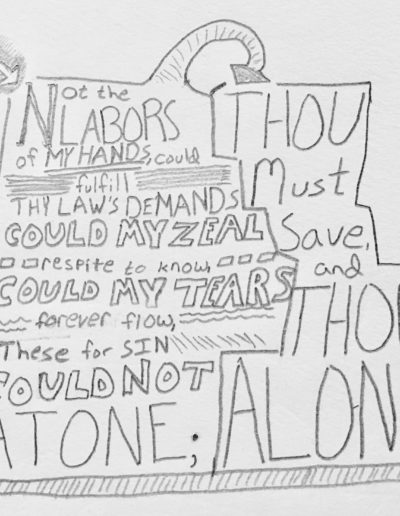 Not the
LABORS
of MY HANDS, could
fulfill
THY LAW'S DEMANDS
COULD MY ZEAL
respite to know,
COULD MY TEARS
forever flow,
These for SIN
COULD NOT
ATONE;
THOU
Must
Save,
and
THOU
ALON